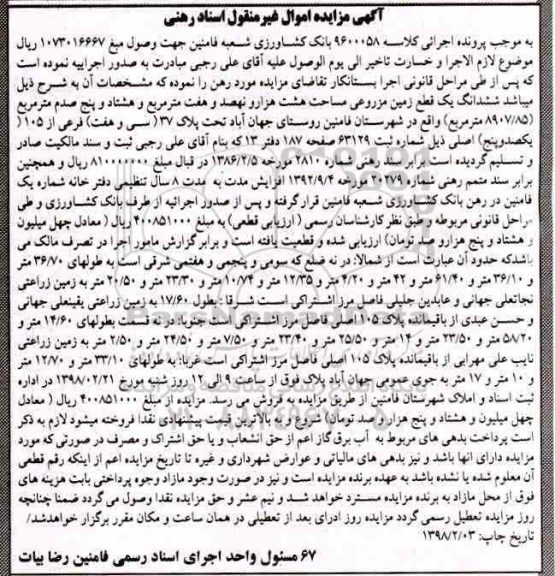 آگهی مزایده اموال غیرمنقول اسناد رهنی
به موجب پرونده اجرائی کلاسه ۹۶۰۰۰۵۸ بانک کشاورزی شعبه فامنین جهت وصول مبلغ ۱۰۷۳۰۱۶۶۶۷ ریال
موضوع لازم الاجرا و خسارت تاخیر الی یوم الوصول علیه آقای علی رجبی مبادرت به صدور اجراییه نموده است
که پس از طی مراحل قانونی اجرا بستانکار تقاضای مزایده مورد رهن را نموده که مشخصات آن به شرح ذیل
میباشد ششدانگ یک قطع زمین مزروعی مساحت هشت هزارو نهصد و هفت مترمربع و هشتاد و پنج صدم مترمربع
(۸۹۰۷/۸۵ مترمربع) واقع در شهرستان فامنین روستای جهان آباد تحت پلاک ۳۷ (سی و هفت) فرعی از ۱۰۵ (
یکصدوپنج) اصلی ذیل شماره ثبت ۶۳۱۲۹ صفحه ۱۸۷ دفتر ۱۳ که بنام آقای علی رجبی ثبت و سند مالکیت صادر
و تسلیم گردیده است. برابر سند رهنی شماره ۲۸۱۰ مورخه ۱۳۸۶/۲/۵ در قبال مبلغ ۸۱۰۰۰۰۰۰۰ ریال و همچنین
برابر سند متمم رهنی شماره ۲۰۲۷۹ مورخه ۱۳۹۲/۹/۴ افزایش مدت به مدت ۸ سال تنظیمی دفتر خانه شماره یک
فامنین در رهن بانک کشاورزی شعبه فامنین قرار گرفته و پس از صدور اجرائیه از طرف بانک کشاورزی و طی
مراحل قانونی مربوطه و طبق نظر کارشناسان رسمی ( ارزیابی قطعی) به مبلغ ۴۰۰۸۵۱۰۰۰ ریال ( معادل چهل میلیون
و هشتاد و پنج هزارو صد تومان) ارزیابی شده و قطعیت یافته است و برابر گزارش مامور اجرا در تصرف مالک می
باشدکه حدود آن عبارت است از شمالا: در نه ضلع که سومی و پنجمی و هفتمی شرقی است به طولهای ۳۶/۷۰ متر
و ۳۶/۱۰ متر و ۶۱/۴۰ متر و ۴۲ متر و ۴/۲۰ متر و ۱۲/۳۵ متر و ۱۰/۷۴ متر و ۲۳/۳۰ متر و ۲۰/۵۰ متر به زمین زراعتی
نجاتعلی جهانی و عابدین جلیلی فاصل مرز اشتراکی است شرقا : بطول ۱۷/۶۰ به زمین زراعتی یقینعلی جهانی
و حسن عبدی از باقیمانده پلاک ۱۰۵ اصلی فاصل مرز اشتراکی است جنوبا: درنه قسمت بطولهای ۱۴/۶۰ متر و
۵۸/۲۰ متر و ۲۳/۵۰ متر و ۱۴ متر و ۲۵/۵۰ متر و ۲۳/۴۰ متر و ۷/۵۰ متر و ۲۴/۵۰ متر و ۲/۵۰ متر به زمین زراعتی
نایب علی مهرابی از باقیمانده پلاک ۱۰۵ اصلی فاصل مرز اشتراکی است غربا: به طولهای ۳۳/۱۰ متر و ۱۲/۷۰ متر
و ۱۰ متر و ۱۷ متر به جوی عمومی جهان آباد پلاک فوق از ساعت ۹ الی ۱۲ روز شنبه مورخ ۱۳۹۸/۰۲/۲۱ در اداره
ثبت اسناد و املاک شهرستان فامنین از طریق مزایده به فروش می رسد. مزایده از مبلغ ۴۰۰۸۵۱۰۰۰ ریال ( معادل
چهل میلیون و هشتاد و پنج هزارو صد تومان) شروع و به بالاترین قیمت پیشنهادی نقدا فروخته میشود لازم به ذکر
است پرداخت بدهی های مربوط به آب برق گاز اعم از حق انشعاب و یا حق اشتراک و مصرف در صورتی که مورد
مزایده دارای انها باشد و نیز بدهی های مالیاتی و عوارض شهرداری و غیره تا تاریخ مزایده اعم از اینکه رقم قطعی
آن معلوم شده یا نشده باشد به عهده برنده مزایده است و نیز در صورت وجود مازاد وجوه پرداختی بابت هزینه های
فوق از محل مازاد به برنده مزایده مسترد خواهد شد و نیم عشر و حق مزایده نقدا وصول می گردد ضمنا چنانچه
روز مزایده تعطیل رسمی گردد مزایده روز ادرای بعد از تعطیلی در همان ساعت و مکان مقرر برگزار خواهدشد/
تاریخ چاپ: ۱۳۹۸/۲/۰۳
۶۷ مسئول واحد اجرای اسناد رسمی فامنین رضا بیات